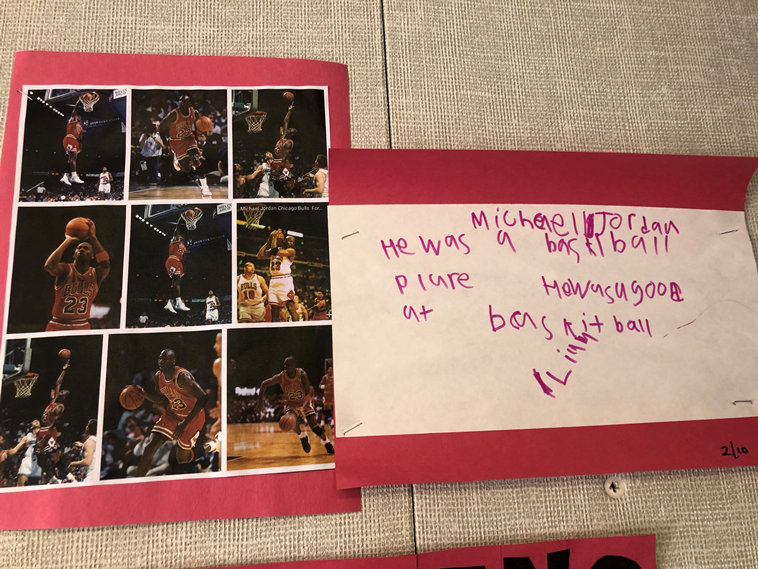 Michael Jordan Chicago Bulls For...
23
BULLS
10
23
23
23
Michaell Jordan
He was a basktball
plare He was a good
at baskitball
2/10